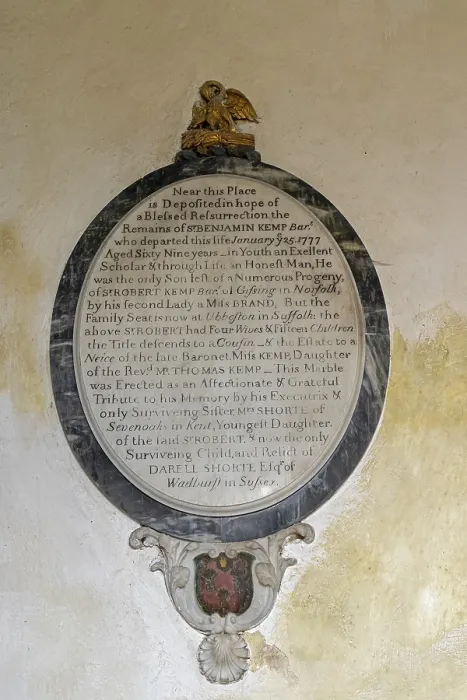 Near this Place
is Deposited in hope of
a Blessed Ressurection the
Remains of Sr BENJAMIN KEMP Bart.
who departed this life January ye 25. 1777
Aged Sixty Nine years _ in Youth an Exellent
Scholar & through Life an Honest Man, He
was the only Son left of a Numerous Progeny,
of Sr ROBERT KEMP Bart. of Gissing in Norfolk,
by his second Lady a Miss BRAND, But the
Family Seat is now at Ubbeston in Suffolk the
above Sr ROBERT had Four Wives & Fifteen Children
the Title descends to a Cousin _ & the Estate to a
Neice of the late Baronet, Miss KEMP, Daughter
of the Revd. Mr. THOMAS KEMP _ This Marble
was Erected as an Affectionate & Grateful
Tribute to his Memory by his Executrix &
only Surviveing Sister Mrs SHORTE of
Sevenoaks in Kent, Youngest Daughter
of the said Sr ROBERT, & now the only
Surviveing Child, and Relict of
DARELL SHORTE Esqr. of
Wadhurst in Sussex.